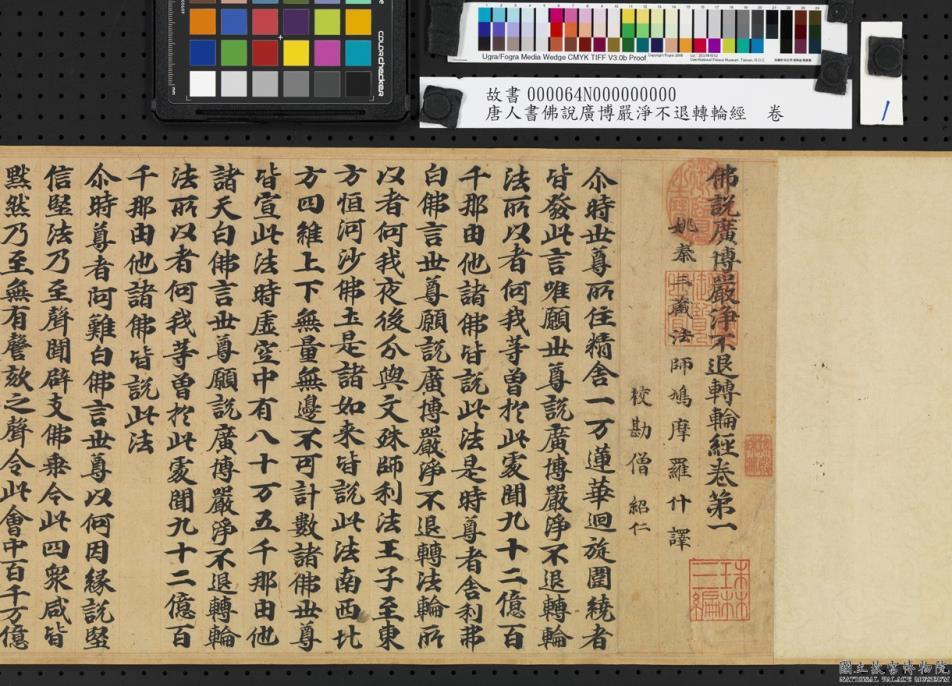 colorchecker
Ugra/Fogra Media Wedge CMYK TIFF V3.0b Proof
故書 000064N000000000
唐人書佛說廣博嚴淨不退轉輪經 卷
1
佛說廣博嚴淨不退轉輪經卷第一
姚秦三藏法師鳩摩羅什譯
校勘僧紹仁
尒時世尊所住精舍一万蓮華迴旋圍繞者
皆發此言唯願世尊說廣博嚴淨不退轉輪
法所以者何我等曾於此處聞九十二億百
千那由他諸佛皆說此法是時尊者舍利弗
白佛言世尊願說廣博嚴淨不退轉法輪所
以者何我夜後分與文殊師利法王子至東
方恒河沙佛土是諸如来皆說此法南西北
方四維上下無量無邊不可計數諸佛世尊
皆宣此法時虛空中有八十万五千那由他
諸天白佛言世尊願說廣博嚴淨不退轉輪
法所以者何我等曾於此處聞九十二億百
千那由他諸佛皆說此法
尒時尊者阿難白佛言世尊以何因緣說堅
信堅法乃至聲聞辟支佛乗令此四衆咸皆
黙然乃至無有謦欬之聲令此會中百千万億
珠林
三編
國立故宮博物院
NATIONAL PALACE MUSEUM